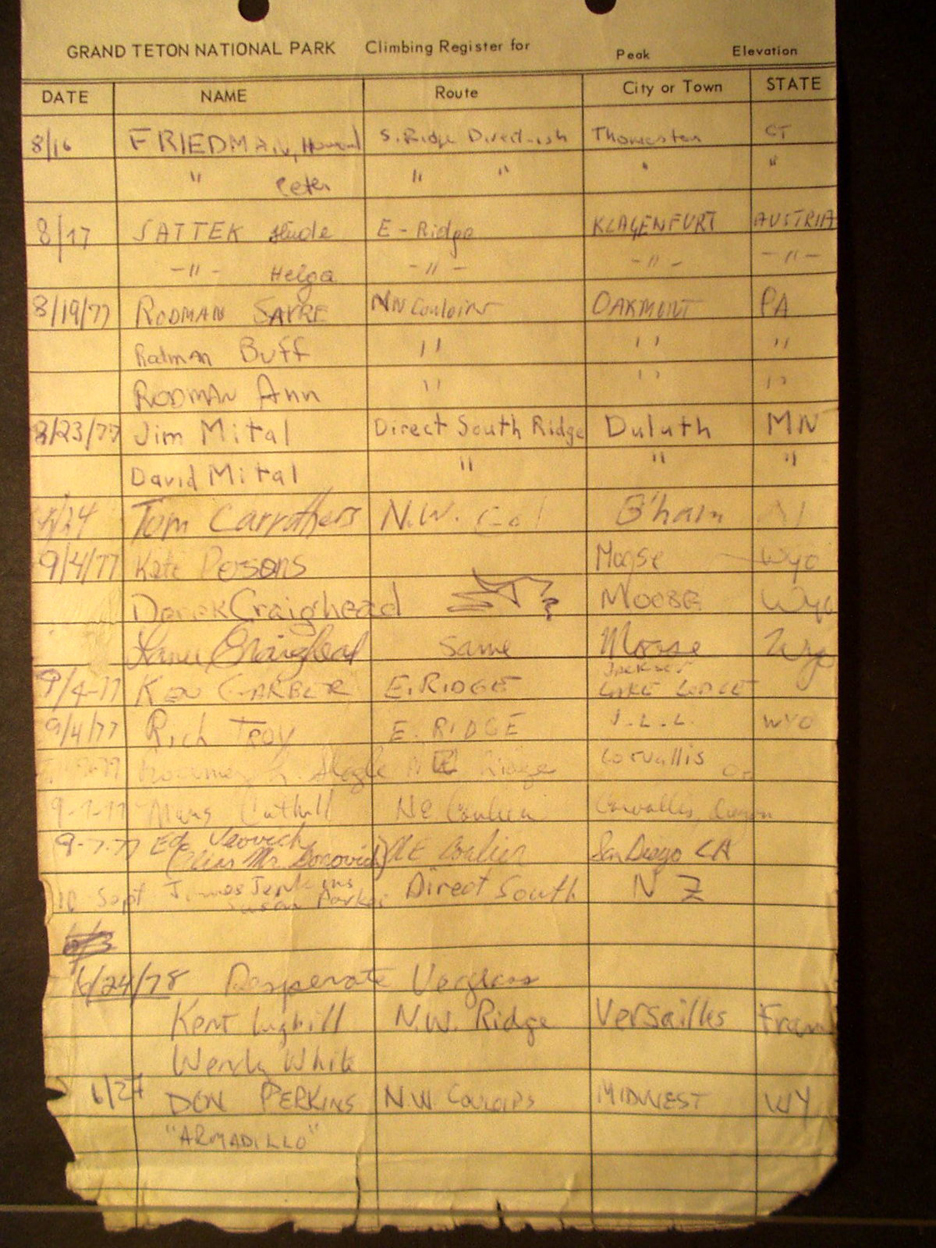 GRAND TETON NATIONAL PARK Climbing Register for Peak Elevation
DATE NAME Route City or Town STATE
8/16 FRIEDMAN, S. Ridge Thomaston CT
" Peter " " " "
8/17 SATTEK E-Ridge KLAGENFURT AUSTRIA
-"- Helga -"- -"- -"-
8/19/77 RODMAN SAYRE NW Couloir OAKMONT PA
Rodman Buff " " "
RODMAN Ann " " "
8/23/77 Jim Mital Direct South Ridge Duluth MN
David Mital " " "
8/24 Tom Carrothers N.W. Col B'ham Al
9/4/77 Kate Persons Moose Wyo
Derek Craighead MOOSE Wyo
Lance Craighead same Moose Wyo
9/4-77 KEN GARBER E. RIDGE Jackson LAKE LODGE
9/4/77 Rich TROY E. RIDGE J.L.L. WYO
Ridge Corvallis Or
9-7-77 NE Couloir Corvallis, Oregon
9-7-77 Ed
(alias Mr. NE Couloir San Diego CA
10 Sept James Jenkins Direct South N Z
Susan Parker
6/24/78 Desperate Verglas
Kent Lughill N.W. Ridge Versailles Fran
Wendy White
6/27 DON PERKINS NW Couloirs MIDWEST WY
"ARMADILLO"